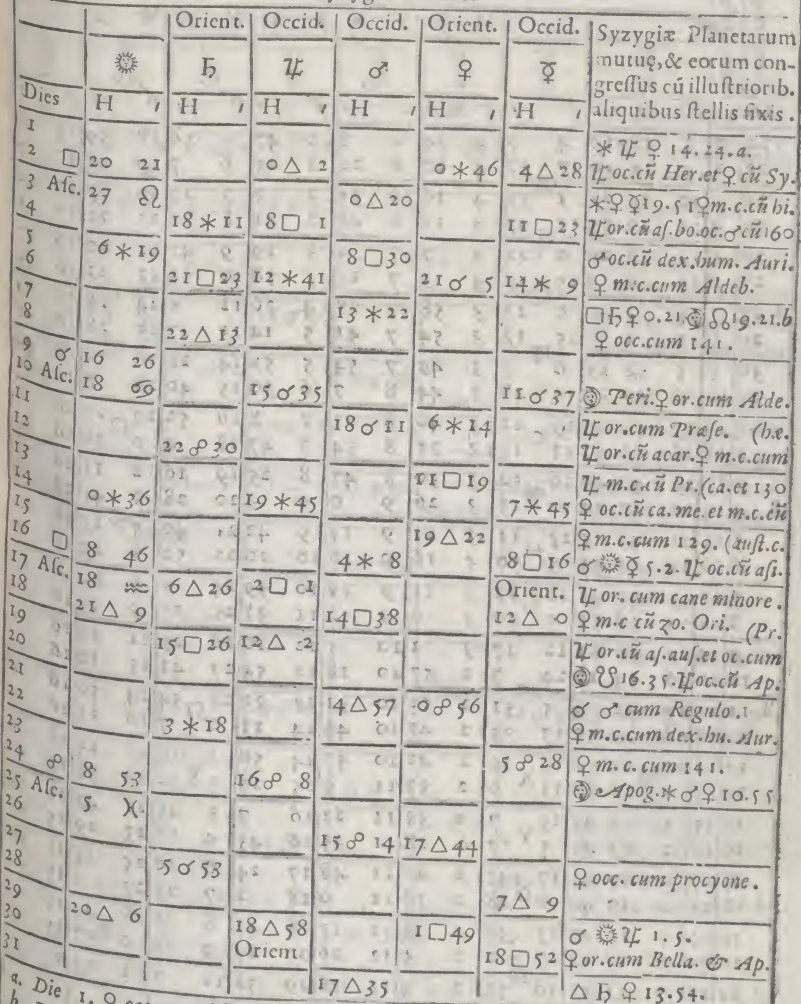 Orient. Occid. Occid. Orient. Occid. Syzygiæ Planetarum
☼ ♄ ♃ ♂ ♀ ☿ mutuę,& eorum con-
greſſus cū illuſtriorib.
Dies H ′ H ′ H ′ H ′ H ′ H ′ aliquibus ſtellis fixis .
1
2 □ 20 21 0 △ 2 0 ✶ 46 4 △ 28 ✶ ♃ ♀ 14. 24. a.
♃ oc.cū Her.et ♀ cū Sy.
3 Aſc. 27 ♌ 0 △ 20 ✶ ♀ ☿ 19. 51 ♀ m.c.cū hi.
4 18 ✶ 11 8 □ 1 11 □ 23 ♃ or.cū aſ.bo.oc.♂ cū 160
5 6 ✶ 19 8 □ 30 ♂ oc.cū dex.hum. Auri.
6 21 □ 23 12 ✶ 41 21 ☌ 5 14 ✶ 9 ♀ m.c.cum Aldeb.
7 13 ✶ 22 □ ♄ ♀ 0.21. ☊ 19.21.b
8 22 △ 13 ♀ occ.cum 141.
9 ☌ 16 26
10 Aſc. 18 ♋ 15 ☌ 35 11 ☌ 37 Peri.♀ or.cum Alde.
11 18 ☌ 11 6 ✶ 14 ♃ or.cum Præſe. (bæ.
12 22 ☍ 30 ♃ or.cū acar.♀ m.c.cum
13
14 0 ✶ 36 19 ✶ 45 11 □ 19 7 ✶ 45 ♃ m.c.cū Pr.(ca.et 130
15 ♀ oc.cū ca. me. et m.c.cū
16 □ 8 46 4 ✶ 8 19 △ 22 8 □ 16 ♀ m.c.cum 129. (auſt.c.
☌ ☼ ☿ 5.2. ♃ oc.cū aſi.
17 Aſc. 18 ♒ 6 △ 26 2 □ 01 Orient. ♃ or. cum cane minore .
18 21 △ 9 14 □ 38 12 △ 0 ♀ m.c cū zo. Ori. (Pr.
19 15 □ 26 12 △ 2 ♃ or.cū aſ.auſ.et oc.cum
20 ☋ 16.35. ♃ oc.cū Ap.
21
22 3 ✶ 18 4 △ 57 0 ☍ 56 ☌ ♂ cum Regulo .
23 ♀ m.c.cum dex.hu. Aur.
24 ☍ 8 53 16 ☍ 8 5 ☍ 28 ♀ m. c. cum 141.
Apog. ✶ ♂ ♀ 10.55
25 Aſc. 5 ♓
26 15 ☍ 14 17 △ 44
27
28 5 ☌ 53 7 △ 9 ♀ occ. cum procyone .
29 20 △ 6
30 18 △ 58 1 □ 49 ☌ ☼ ♃ 1. 5.
Orient. 18 □ 52 ♀ or.cum Bella. & Ap.
31 17 △ 35 △ ♄ ♀ 13.54.
a. Die 1. ♀
b.